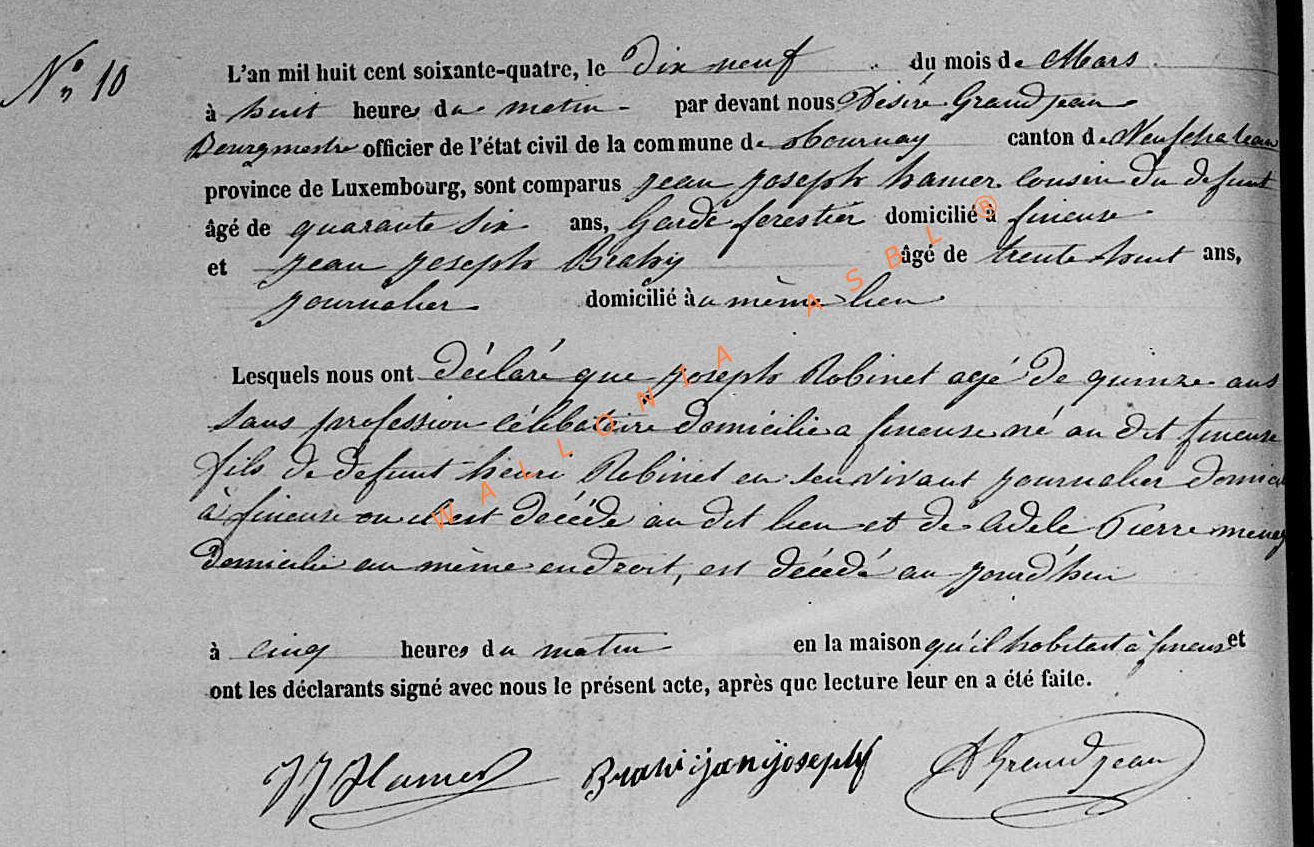 N° 10
L'an mil huit cent soixante-quatre, le Dix neuf du mois de Mars
à huit heures du matin par devant nous Désiré Grandjean
Bourgmestre officier de l'état civil de la commune de Tournay canton de Neufchateau
province de Luxembourg, sont comparus jean joseph hamer cousin du defunt
âgé de quarante six ans, Garde forestier domicilié à fineuse
et jean joseph âgé de trente huit ans,
journalier domicilié àu même lieu
Lesquels nous ont déclaré que joseph Robinet agé de quinze ans
sans profession célibataire domicilie a fineuse né au dit fineuse
fils de defunt henri Robinet en son vivant journalier domici
à fineuse ou il est décédé au dit lieu et de Adele Pierre
domicilié au même endroit, est décédé au jourd'hui
à cinq heures du matin en la maison qu'il habitait à fineuse et
ont les déclarants signé avec nous le présent acte, après que lecture leur en a été faite.
JJ Hamer joseph D Grandjean
WALLONIA ASBL ®